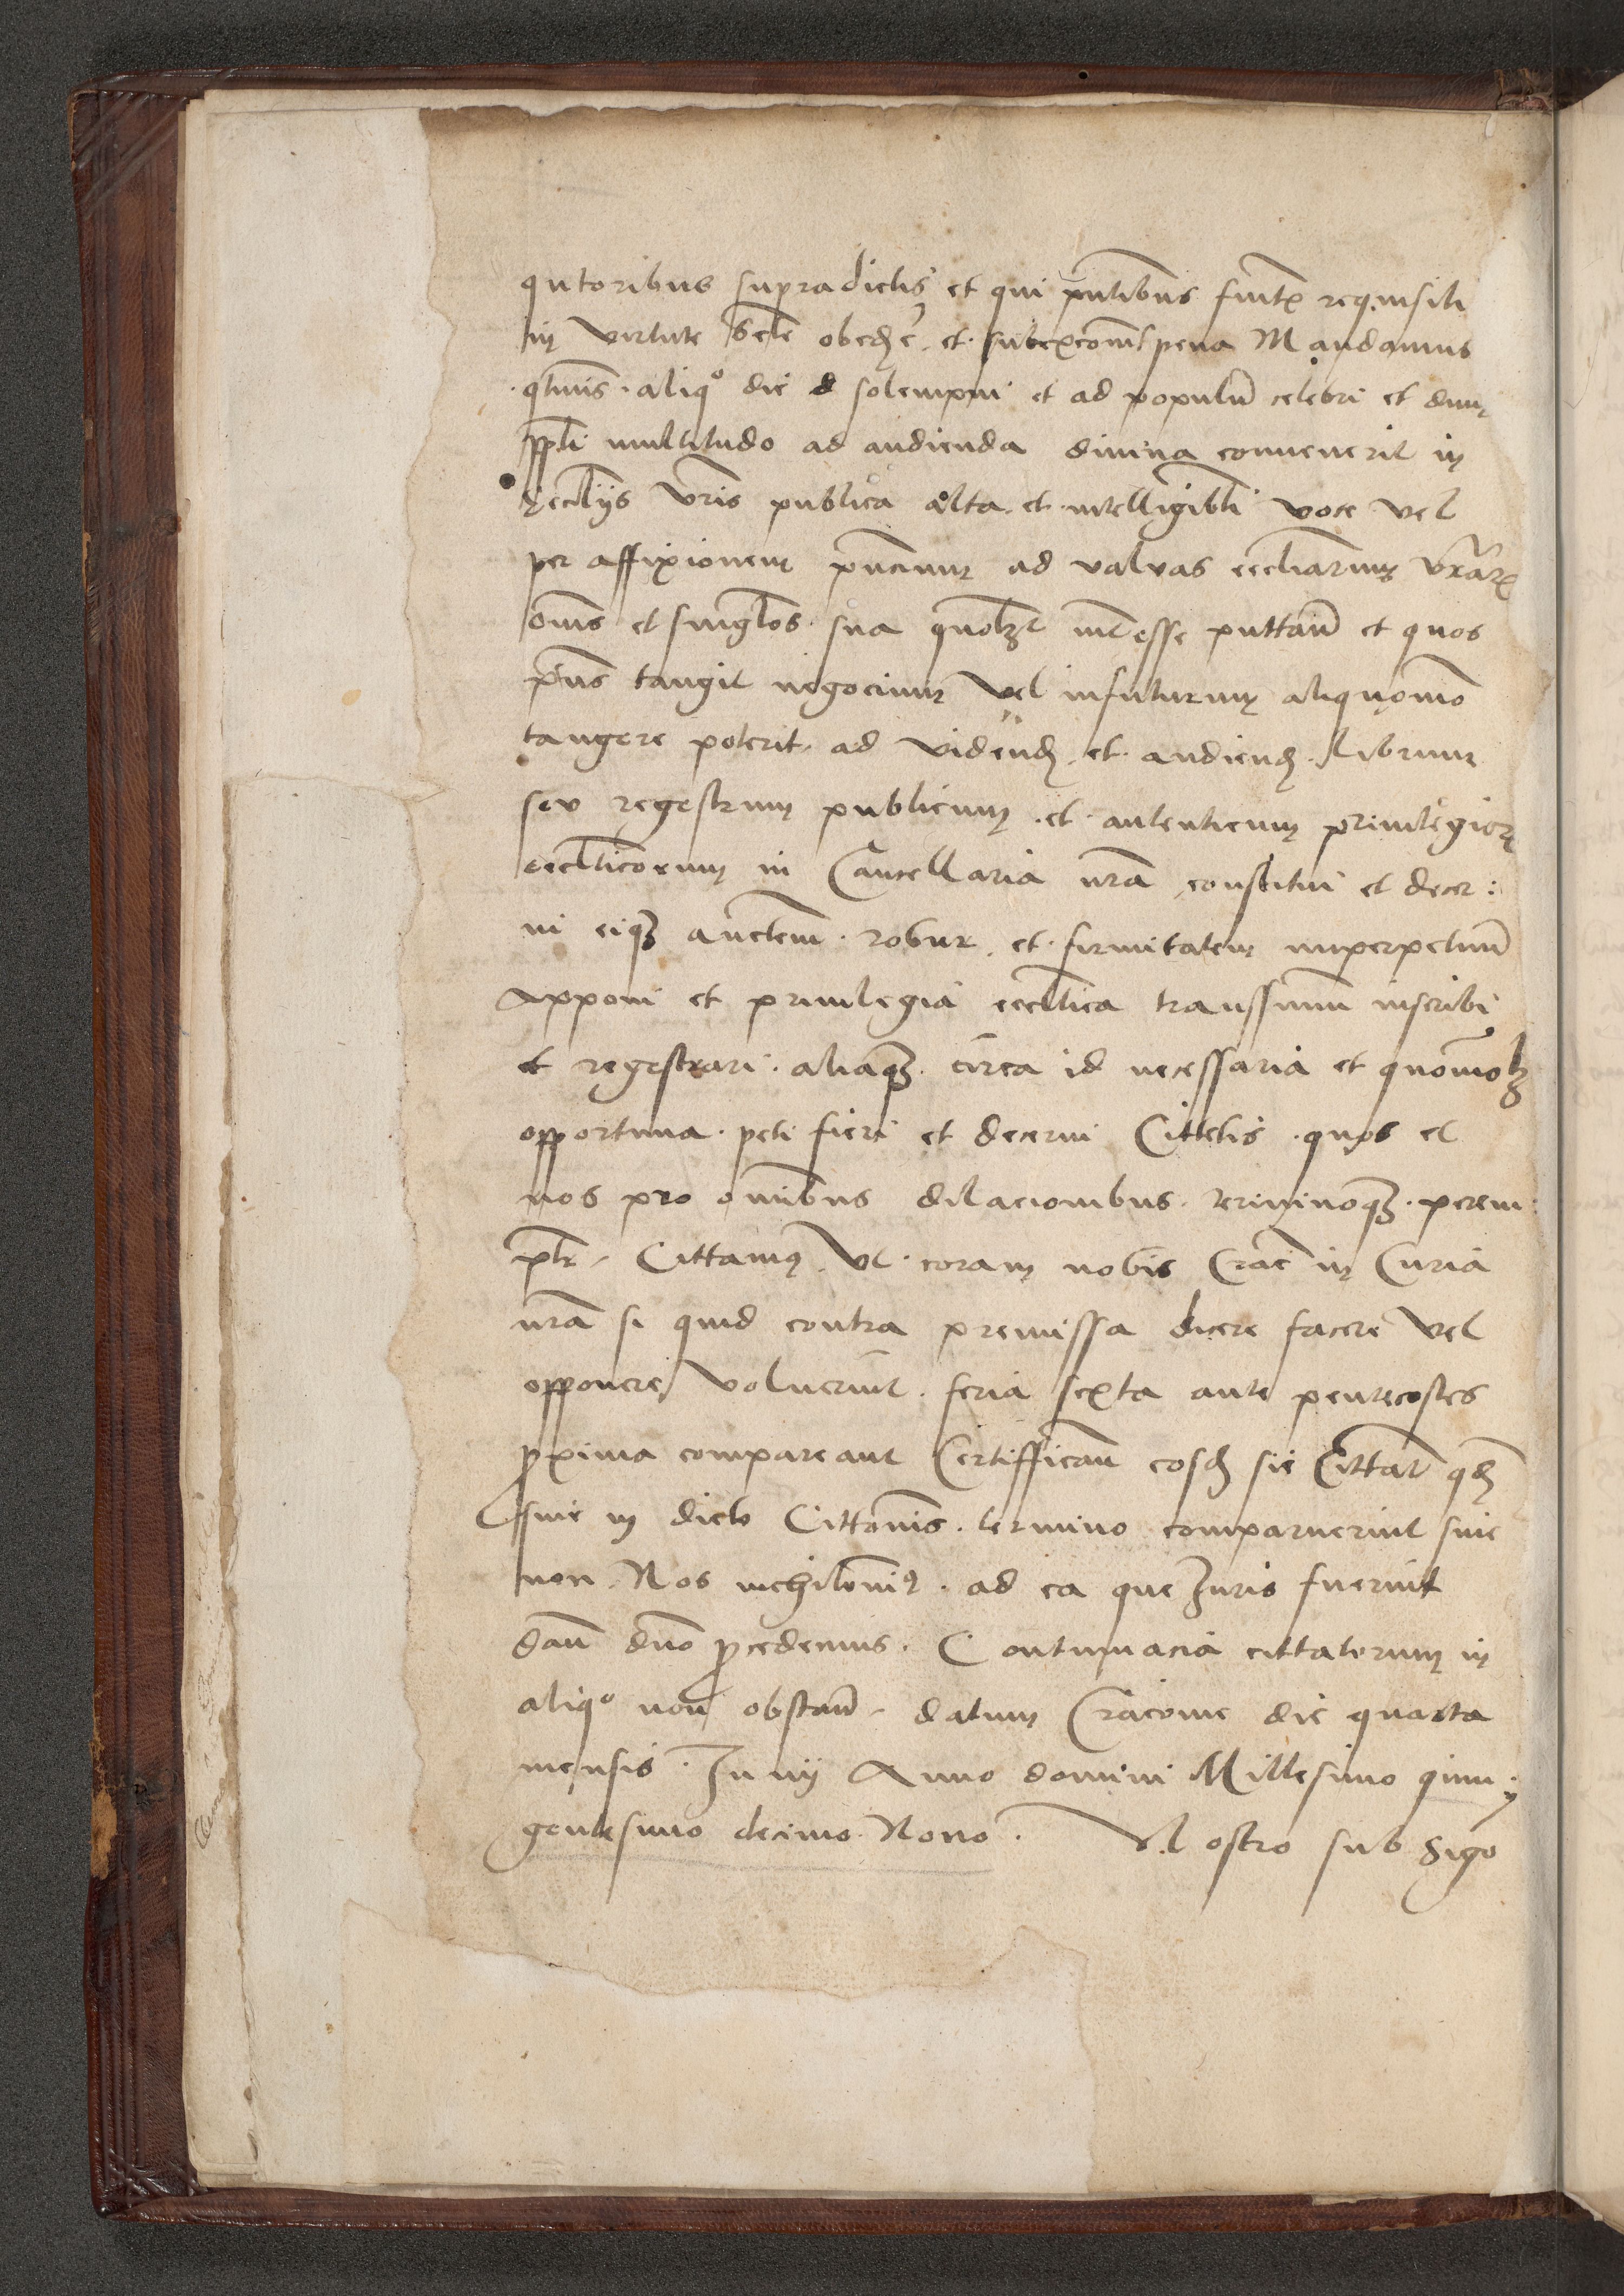 qutoribus supradictis et qui pntibus fuitx requisiti
in virtute scte obedie et sub excoms pena Mandamus
qtnus aliqo die d solempni et ad populu celebri et dum
ppli multitudo ad audienda divina convenerit in
ecclijs vris publica alta et intelligibli voce vel
per affixionem pncium ad valvas eccliarum vrar
oms et singlos sua quolzt intesse puttan et quos
pns tangit negocium vel infuturum aliquomo
tangere poterit ad videnđ et audienđ librum
seu regestrum publicum et autenticum privilegior
ecclticorum in Cancellaria nra constitui et decer:
ni eiqз auctem robur et firmitatem imperpetuu
Apponi et privilegia eccltica transsumi inscribi
et regestrari aliaqз circa id necessaria et quomolz
opportuna peti fieri et decerni Cittetis quos et
nos pro omibus dilacionibus terminoqз perem:
ptr Cittamus ut coram nobis Crac in Curia
nra si quid contra premissa dicere facere vel
opponere voluerint feria sexta ante pentecostes
proxima compareant Certiffican eosđ sic Cittat qđ
sive in dicto Cittonis termino comparuerint sive
non Nos nichilomi9 ad ea que Juris fuerint
dan duo procedemus Contumacia cittatorum in
aliqo non obstan datum Cracovie die quarta
mensis Junij Anno domini Millesimo quin:
gentesimo decimo Nono Nostro sub Sigo